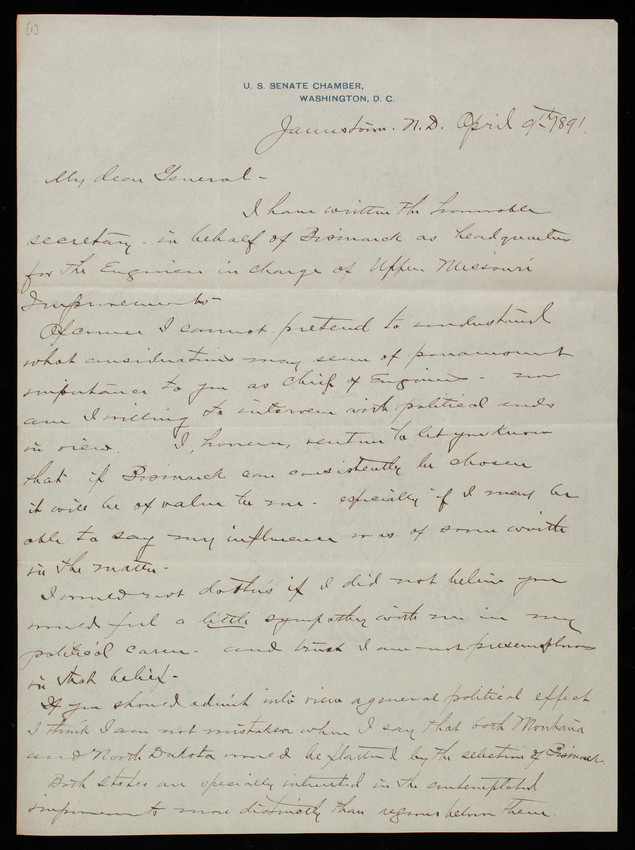 [1]
U. S. SENATE CHAMBER,
WASHINGTON, D. C.
Jamestown. N.D. April 9th 1891.
My dear General -
I have written the honorable
secretary - in behalf of Bismarck as headquarters
for the Engineer in charge of Upper Missouri
Improvements -
Of course I cannot pretend to understand
what considerations may seem of paramount
importance to you as Chief of Engineers - nor
am I willing to intervene with political ends
in view. I, however, venture to let you know
that if Bismarck can consistently be chosen
it will be of value to me - especially if I may be
able to say my influence was of some worth
in the matter -
I would not do this if I did not believe you
would feel a little sympathy with me in my
political career - and trust I am not presumptuous
in that belief -
If you should admit into view a general political effect
I think I am not mistaken when I say that both Montana
and North Dakota would be flattered by the selection of Bismarck.
Both states are specially interested in the contemplated
improvements more distinctly than regions below them.